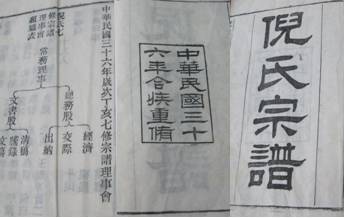 倪氏宗譜
中華民國三十
六年合族重脩
中華民國三十六年歲次丁亥七修宗譜理事會
倪氏七
修宗譜
理事會
組織表
常務理事
總務股
文書股
經濟
交際
出納
清稿